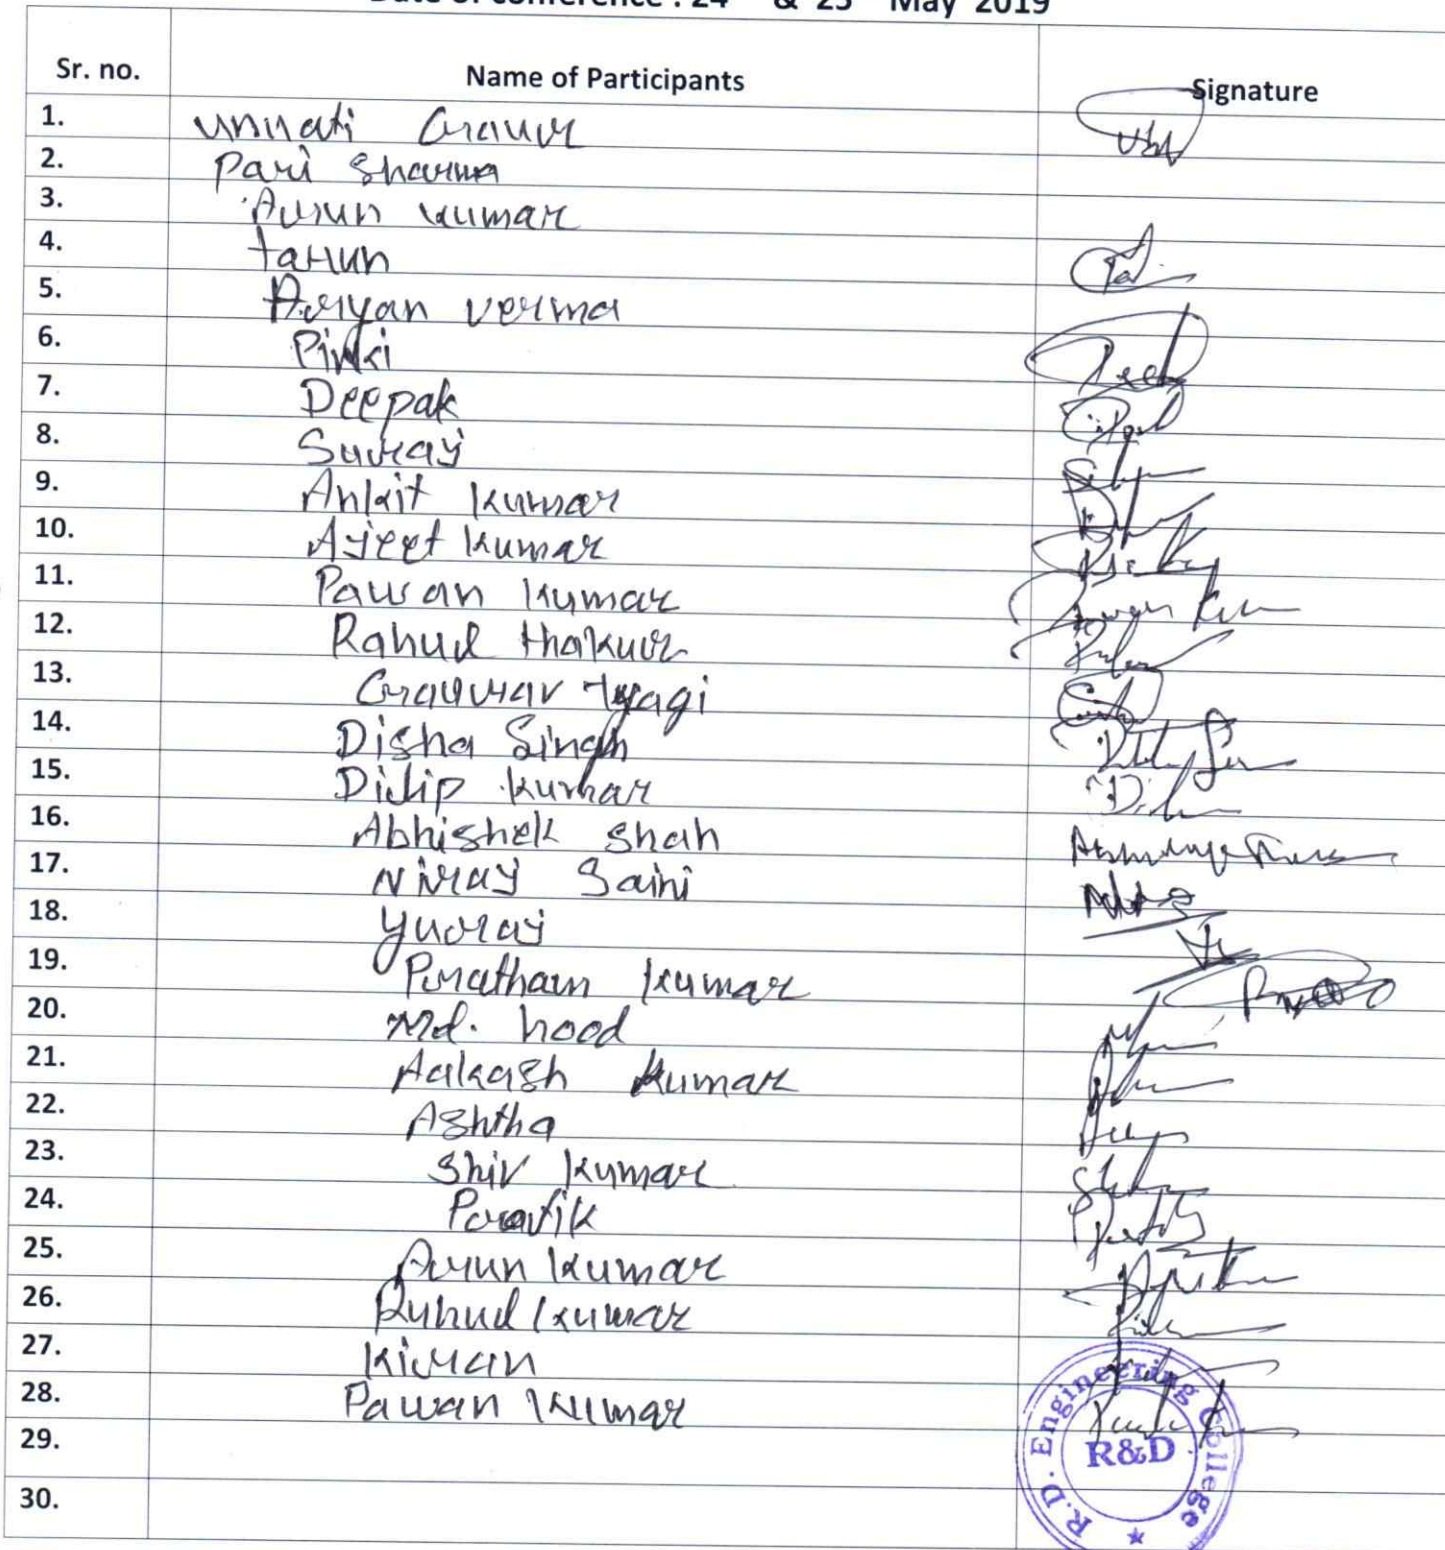 Date of conference : 24 & 25 May 2019
Sr. no. Name of Participants Signature
1. Unnati Graur
2. Pari Sharma
3. Arun kumar
4. tarun
5. Aryan verma
6. Pinki
7. Deepak
8. Suraj
9. Ankit kumar
10. Ajeet kumar
11. Pawan kumar
12. Rahul thakur
13. Gaurav tyagi
14. Disha Singh
15. Dilip kumar
16. Abhishek shah
17. Niraj Saini
18. Yuvraj
19. Pratham kumar
20. Md. hood
21. Aakash kumar
22. Ashtha
23. Shiv kumar
24. Pratik
25. Arun kumar
26. Rahul kumar
27. Kiran
28. Pawan kumar
29.
30.
R.D. Engineering College
R&D